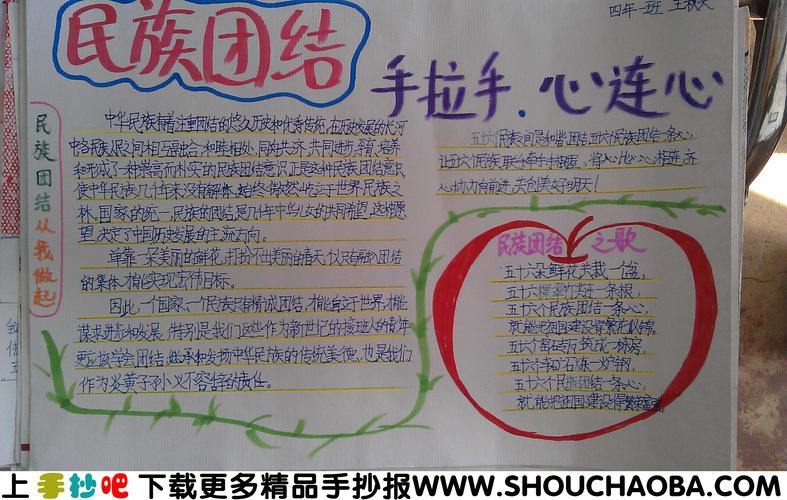 民族团结
四年一班
手拉手.心连心
民族团结从我做起
中华民族有着注重团结的悠久历史和优秀传统,在历史发展的长河
中各族人民之间相互融合,和睦相处,同舟共济,共同进步,孕育,培养
和形成了一种崇高而朴实的民族团结意识,正是这种民族团结意识
使中华民族几千年来没有解体,始终傲然屹立于世界民族之
林。国家的统一,民族的团结是几千年中华儿女的共同希望,这种愿
望,决定了中国历史发展的主流方向。
单靠一朵美丽的鲜花,打扮不出美丽的春天,仅只有融入团结
的集体,才能实现宏伟目标。
因此,一个国家、一个民族只有精诚团结,才能自立于世界,才能
谋求进步和发展,特别是我们这些作为新世纪的接班人的青年
更应该学会团结,继承和发扬中华民族的传统美德,也是我们
作为炎黄子孙义不容辞的责任。
五六个民族之间是和谐团结,五六个民族团结一条心,
让五六个民族 将心比心,心相连,齐
心协力向前进,共创美好明天!
民族团结之歌
五十六朵鲜花共栽一盆,
五十六棵翠竹共连一条根,
五十六个民族团结一条心,
就能把祖国建设得繁花似锦,
五六个
五六 矿石炼一炉钢,
五十六个民族团结一条心,
就能把祖国建设得繁荣富强
上手抄吧 下载更多精品手抄报WWW.SHOUCHAOBA.COM